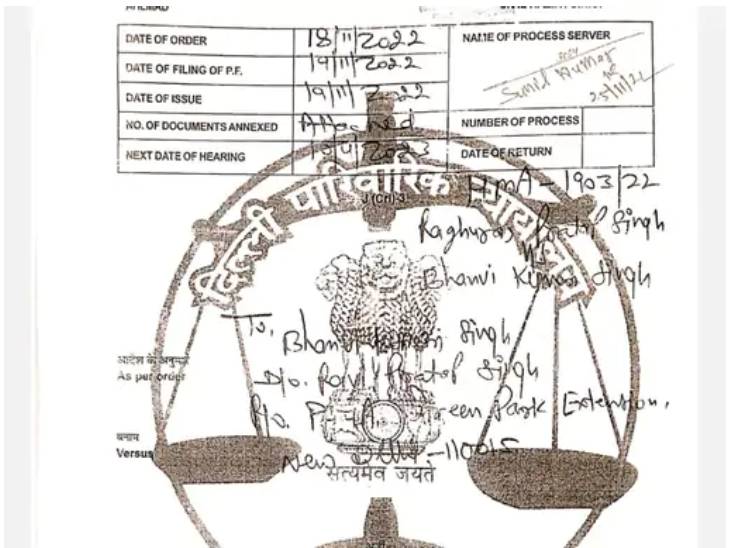 DATE OF ORDER 18/11/2022 NAME OF PROCESS SERVER
DATE OF FILING OF P.F. 19/11/2022
Sunil Kumar
DATE OF ISSUE 19/11/2022
25/11/22
NO. OF DOCUMENTS ANNEXED Attached NUMBER OF PROCESS
NEXT DATE OF HEARING 2023 DATE OF RETURN
HMA - 1903/22
दिल्ली पारिवारिक न्यायालय
J (Crl)-3
Raghuraj Pratap Singh
Vs
Bhanvi Kumari Singh
To,
Bhanvi Kumari Singh
आदेश के अनुसार
As per order
D/o. Ravi Pratap Singh
R/o. Green Park Extension,
बनाम
Versus
New Delhi - 110015
सत्यमेव जयते